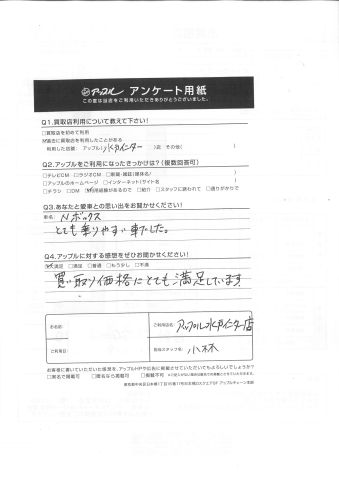 アップル アンケート用紙
この度は当店をご利用いただきありがとうございました。
Q1.買取店利用について教えて下さい!
□買取店を初めて利用
☑過去に買取店を利用したことがある
利用した店舗: アップル 水戸インター 店 その他( )
Q2.アップルをご利用になったきっかけは?(複数回答可)
□テレビCM □ラジオCM □新聞・雑誌(媒体名/ )
□アップルのホームページ □インターネット(サイト名 )
□チラシ □DM ☑利用経験があるので □紹介 □スタッフに誘われて □通りがかりで
Q3.あなたと愛車との思い出をお聞かせください!
車名: Nボックス
とても乗りやすい車でした。
Q4.アップルに対する感想をぜひお聞かせください!
☑大満足 □満足 □普通 □もう少し □不満
買い取り価格にとても満足しています
お名前:
ご利用店名: アップル水戸インター店
ご利用日:
担当スタッフ名: 小林
お客様に書いていただいた感想を、アップルHPや広告に掲載させていただいてもよろしいでしょうか?
□実名で掲載可 □匿名なら掲載可 □掲載不可